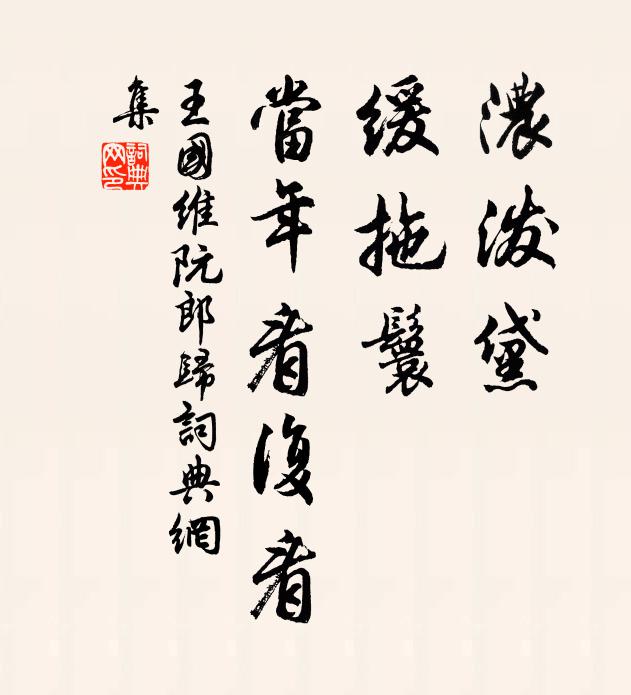 濃潑黛
緩拖鬟
當年看復看
王國維阮郎歸詞典網
集
詞典
网印